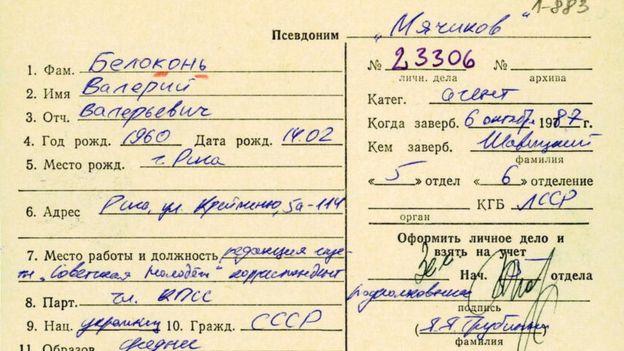 1-883
Псевдоним „Мячиков"
1. Фам. Белоконь
2. Имя Валерий
3. Отч. Валерьевич
4. Год рожд. 1960 Дата рожд. 14.02
5. Место рожд. г. Рига
6. Адрес Рига, ул. 5а-114
7. Место работы и должность редакция
„Советская молодежь" корреспондент
8. Парт. чл. КПСС
9. Нац. украинец 10. Гражд. СССР
11. Образов. среднее
№ 23306 №
личн. дела архива
Катег. агент
Когда заверб. 6 октября 1987 г.
Кем заверб. Шавицкий
фамилия
«5» отдел «6» отделение
КГБ ЛССР
орган
Оформить личное дело и
взять на учет
Нач. отдела
подполковник
подпись
(
фамилия